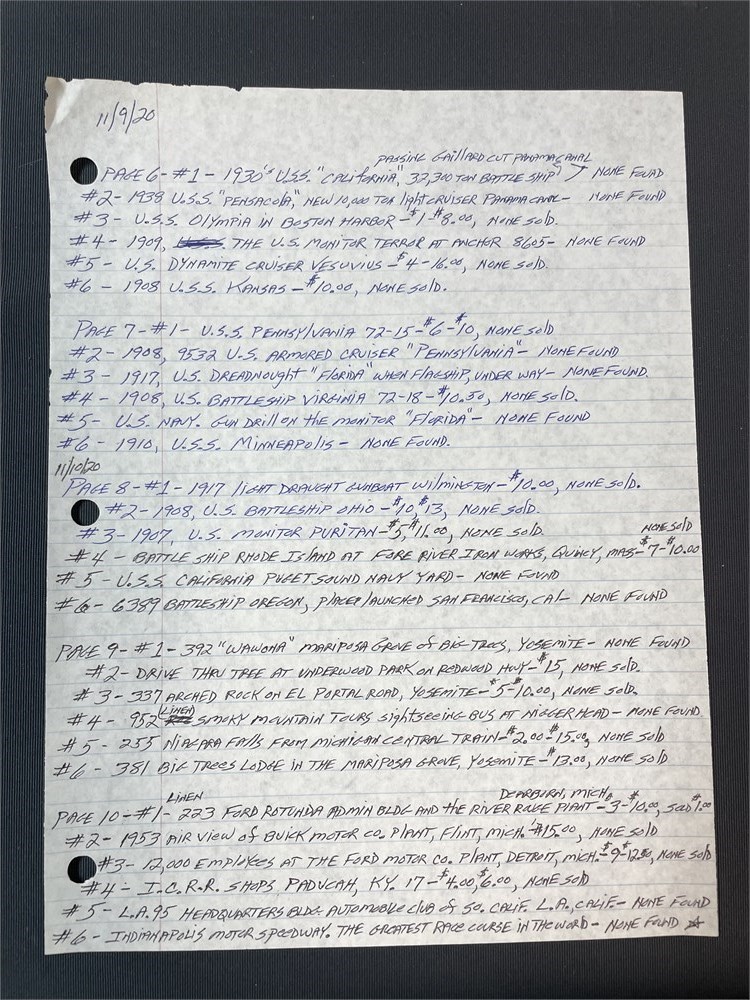 11/9/20
PASSING GAILLARD CUT PANAMA CANAL
PAGE 6- #1- 1930's U.S.S. "CALIFORNIA", 32,300 TON BATTLE SHIP NONE FOUND
#2- 1938 U.S.S. "PENSACOLA", NEW 10,000 TON light CRUISER PANAMA CANAL- NONE FOUND
#3- U.S.S. OLYMPIA IN BOSTON HARBOR-$1-$8.00, NONE SOLD.
#4- 1909, THE U.S. MONITOR TERROR AT ANCHOR 8605- NONE FOUND
#5- U.S. DYNAMITE CRUISER VESUVIUS-$4-16.00, NONE SOLD.
#6- 1908 U.S.S. KANSAS-$10.00, NONE SOLD.
PAGE 7-#1- U.S.S. PENNSYLVANIA 72-15-$6-$10, NONE SOLD
#2- 1908, 9532 U.S. ARMORED CRUISER "PENNSYLVANIA"- NONE FOUND
#3- 1917, U.S. DREADNOUGHT "FLORIDA" WHEN FLAGSHIP, UNDER WAY- NONE FOUND.
#4- 1908, U.S. BATTLESHIP VIRGINIA 72-18-$10.50, NONE SOLD.
#5- U.S. NAVY. GUN DRILL ON THE MONITOR "FLORIDA"- NONE FOUND
#6- 1910, U.S.S. MINNEAPOLIS- NONE FOUND.
11/10/20
PAGE 8-#1- 1917 LIGHT DRAUGHT GUNBOAT WILMINGTON-$10.00, NONE SOLD.
#2- 1908, U.S. BATTLESHIP OHIO-$10,$13, NONE SOLD.
#3- 1907, U.S. MONITOR PURITAN-$5,$11.00, NONE SOLD.
NONE SOLD
#4- BATTLE SHIP RHODE ISLAND AT FORE RIVER IRON WORKS, QUINCY, MASS-$7-$10.00
#5- U.S.S. CALIFORNIA PUGET SOUND NAVY YARD- NONE FOUND
#6- 6389 BATTLESHIP OREGON, PLACE LAUNCHED SAN FRANCISCO, CAL- NONE FOUND
PAGE 9-#1- 392 "WAWONA" MARIPOSA GROVE OF BIG TREES, YOSEMITE- NONE FOUND
#2- DRIVE THRU TREE AT UNDERWOOD PARK ON REDWOOD HWY-$15, NONE SOLD.
#3- 337 ARCHED ROCK ON EL PORTAL ROAD, YOSEMITE-$5-$10.00, NONE SOLD.
#4- 952 LINEN SMOKY MOUNTAIN TOURS SIGHTSEEING BUS AT NIGGER HEAD- NONE FOUND.
#5- 255 NIAGARA FALLS FROM MICHIGAN CENTRAL TRAIN-$2.00-$15.00, NONE SOLD
#6- 381 BIG TREES LODGE IN THE MARIPOSA GROVE, YOSEMITE-$13.00, NONE SOLD
LINEN DEARBURN, MICH.
PAGE 10-#1- 223 FORD ROTUNDA ADMIN BLDG AND THE RIVER ROUGE PLANT-$3-$10.00, SOLD $1.00
#2- 1953 AIR VIEW OF BUICK MOTOR CO. PLANT, FLINT, MICH. $15.00, NONE SOLD
#3- 12,000 EMPLOYEES AT THE FORD MOTOR CO. PLANT, DETROIT, MICH.-$9-$12.50, NONE SOLD
#4- I.C.R.R. SHOPS PADUCAH, KY. 17-$4.00,$6.00, NONE SOLD
#5- L.A.95 HEADQUARTERS BLDG. AUTOMOBILE CLUB OF SO. CALIF. L.A., CALIF- NONE FOUND
#6- INDIANAPOLIS MOTOR SPEEDWAY. THE GREATEST RACE COURSE IN THE WORD- NONE FOUND ☆